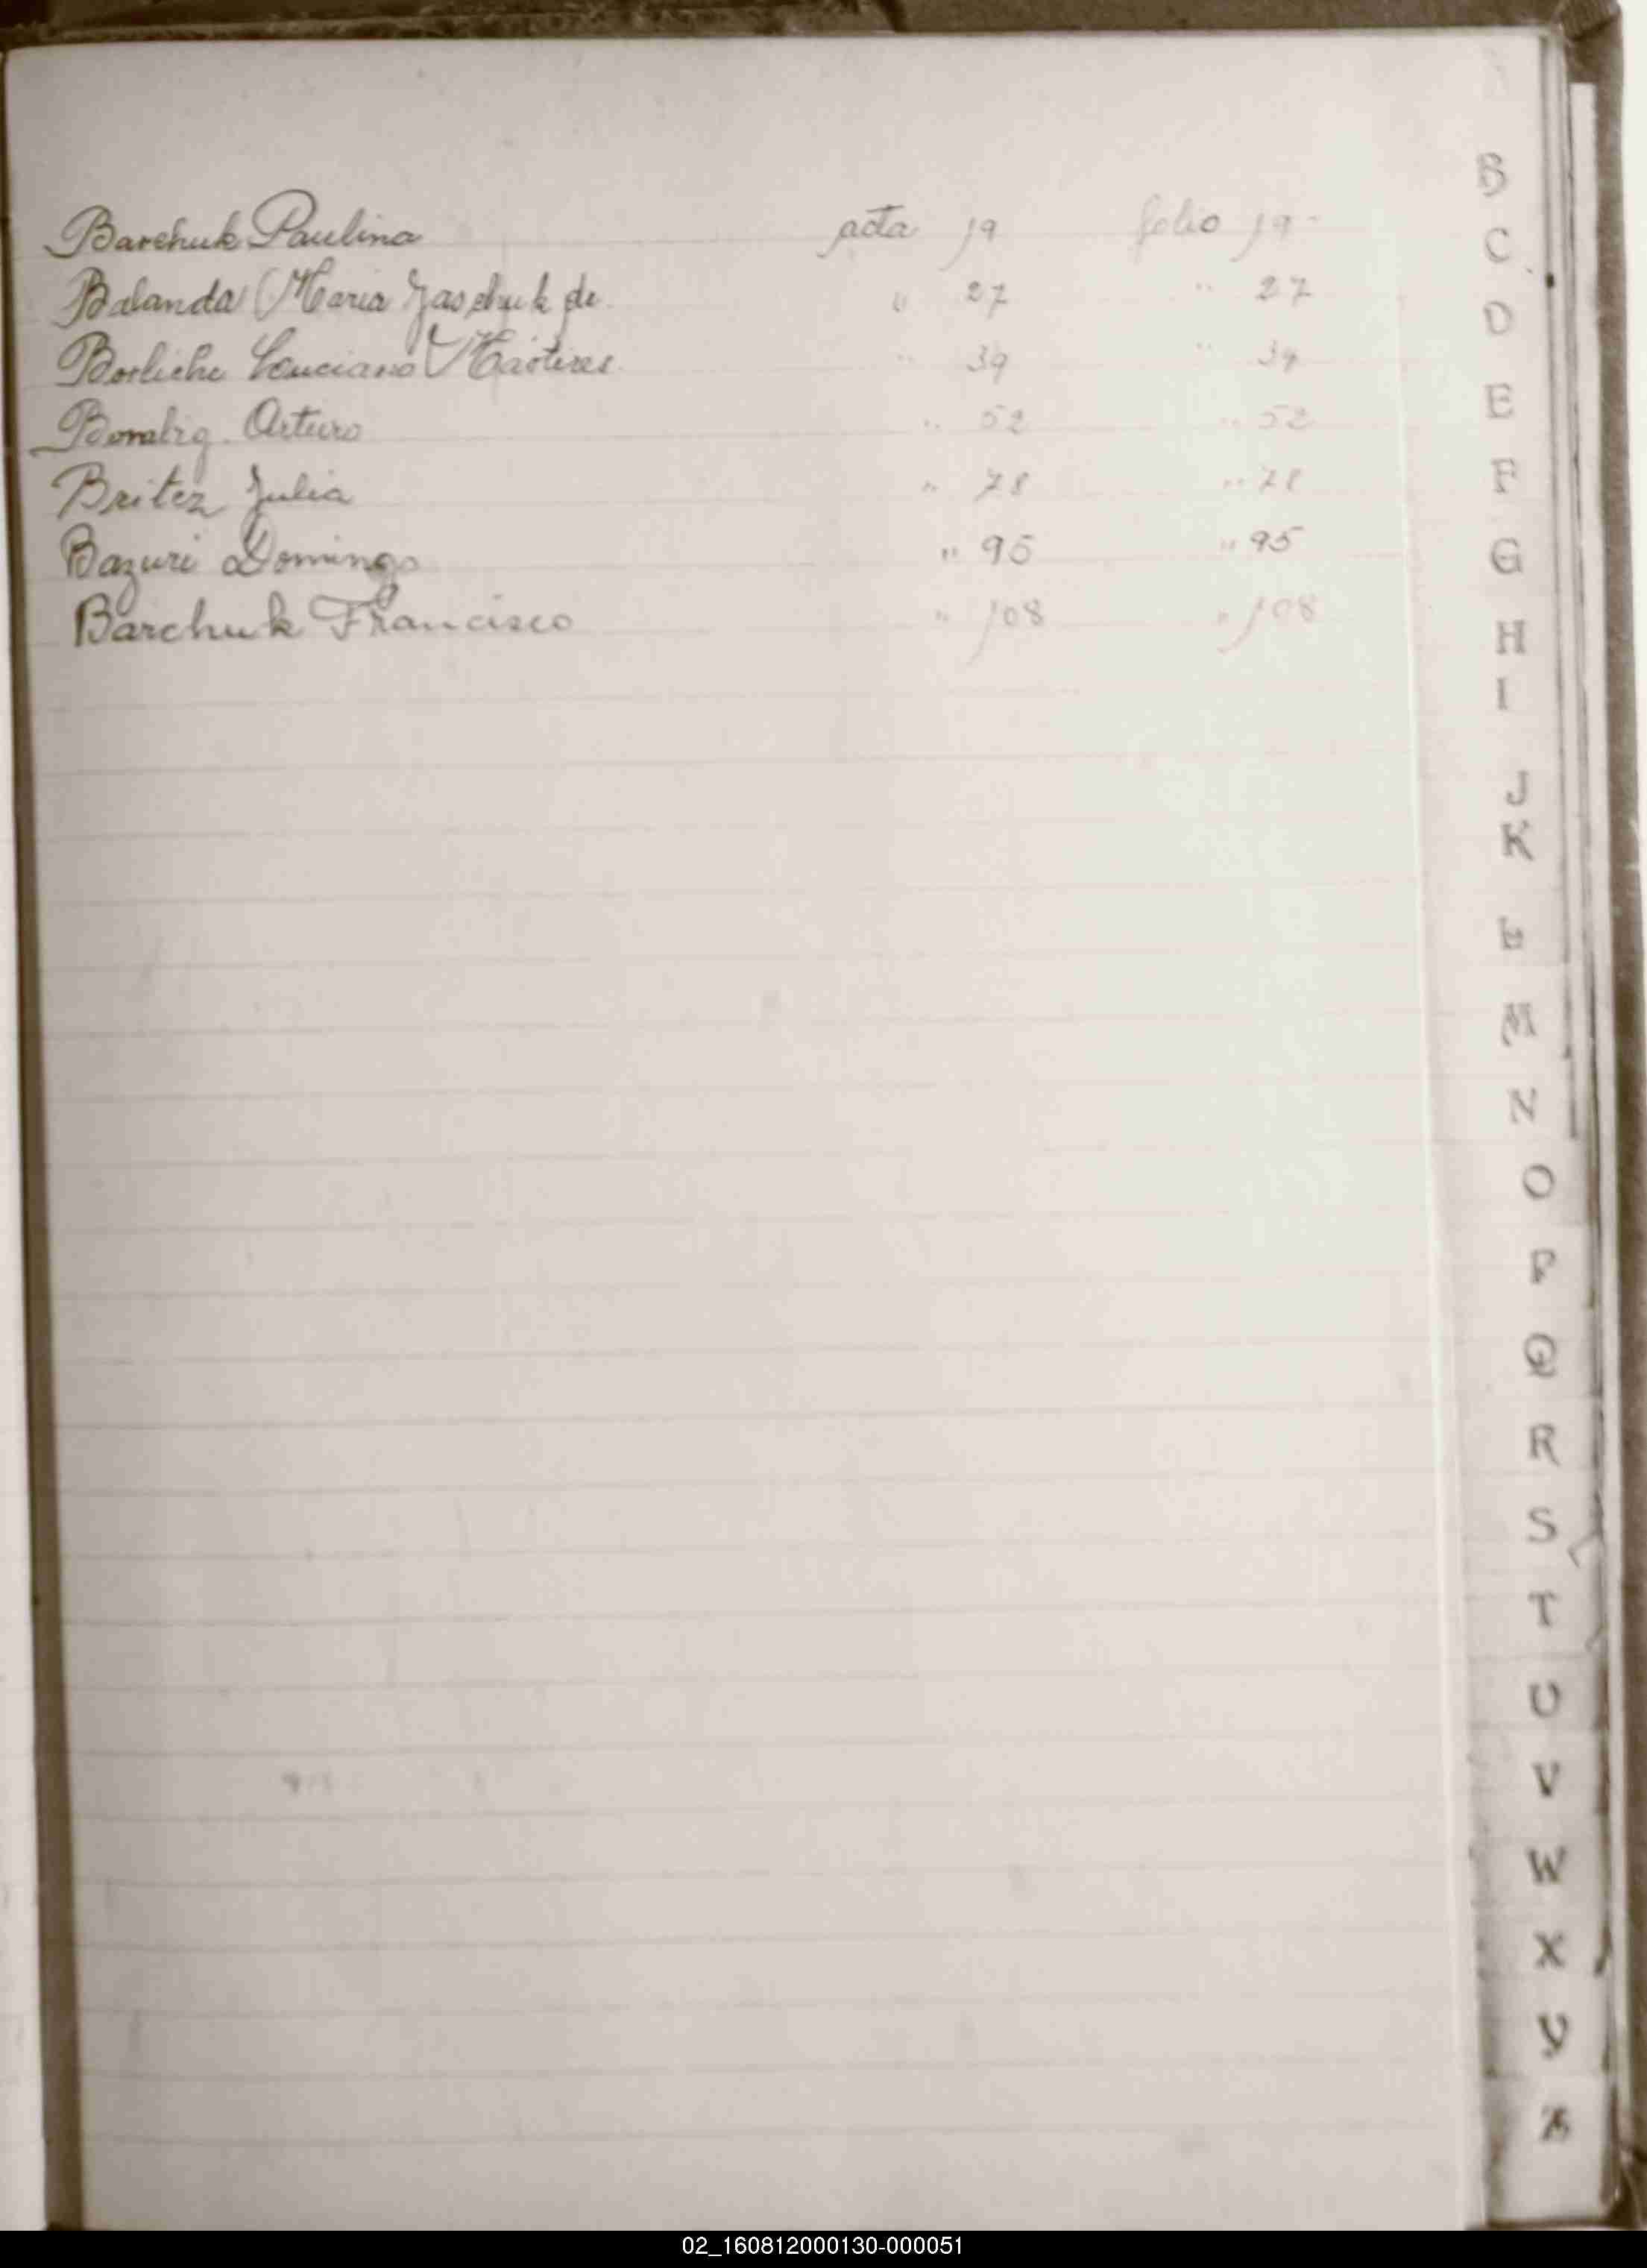 Barchuk Paulina acta 19 folio 19-
Balanda Maria Jaschuk de " 27 " 27
Luciano " 39 " 39
Arturo " 52 " 52
Britez Julia " 78 " 78
Bazuri Domingo " 95 " 95
Barchuk Francisco " 108 " 108
B
C
D
E
F
G
H
I
J
K
L
M
N
O
P
Q
R
S
T
U
V
W
X
Y
Z
02_160812000130-000051